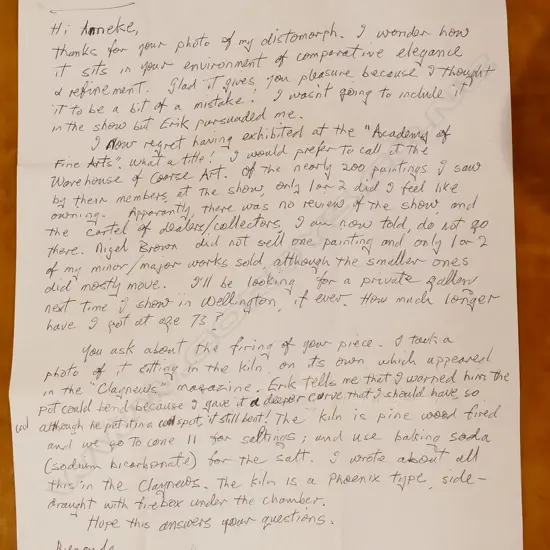 Hi Anneke,
thanks for your photo of my distomorph. I wonder how
it sits in your environment of comparative elegance
& refinement. Glad it gives you pleasure because I thought
it to be a bit of a mistake! I wasn't going to include it
in the show but Erik pursuaded me.
I now regret having exhibited at the "Academy of
Fine Arts". What a title! I would prefer to call it the
Warehouse of Coarse Art. Of the nearly 200 paintings I saw
by their members, at the show, only 1 or 2 did I feel like
owning. Apparently, there was no review of the show, and
the cartel of dealers/collectors, I am now told, do not go
there. Nigel Brown did not sell one painting and only 1 or 2
of my minor/major works sold although the smaller ones
did mostly move. I'll be looking for a private gallery
next time I show in Wellington, if ever. How much longer
have I got at age 73?
You ask about the firing of your piece. I took a
photo of it sitting in the kiln on its own which appeared
in the "Claynews" magazine. Erik tells me that I worned him the
pot could bend because I gave it a deeper curve that I should have, so
although he put it in a cool spot, it still bent! The kiln is pine wood fired
and we go to cone 11 for saltings; and use baking soda
(sodium bicarbonate) for the salt. I wrote about all
this in the Claynews. The kiln is a Phoenix type, side-
draught with firebox under the chamber.
Hope this answers your questions.